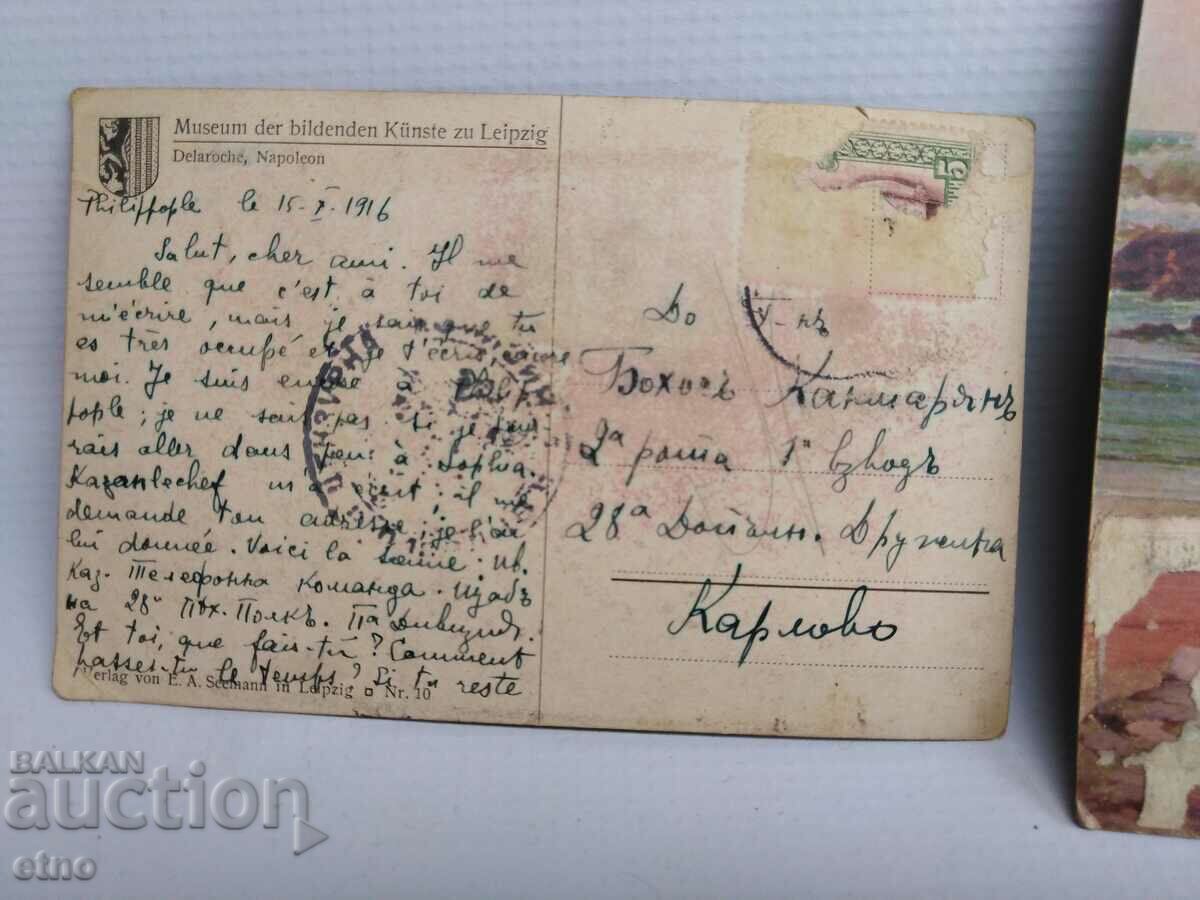 Museum der bildenden Künste zu Leipzig
Delaroche, Napoleon
Philippople le 15-X-1916
Salut, cher ami. Il me
semble que c'est à toi de
m'écrire, mais je sais que tu
es très occupé et je t'écris, encore
moi. Je suis encore à Philip-
pople; je ne sais pas si je pour-
rais aller dans peu à Sophia.
Kazanlechef m'a écrit; il me
demande ton adresse, je l'ai
lui donnée. Voici la sienne: Ив.
Каз. Телефонна команда. Щабъ
на 28й Пех. Полкъ.
Et toi, que fais-tu? Comment
passes-tu le temps? Si tu reste
Verlag von E. A. Seemann in Leipzig □ Nr. 10
5
До
Бохосъ
2а рота 1й взводъ
28а Дружина
Карлово
BALKAN
auction
etno